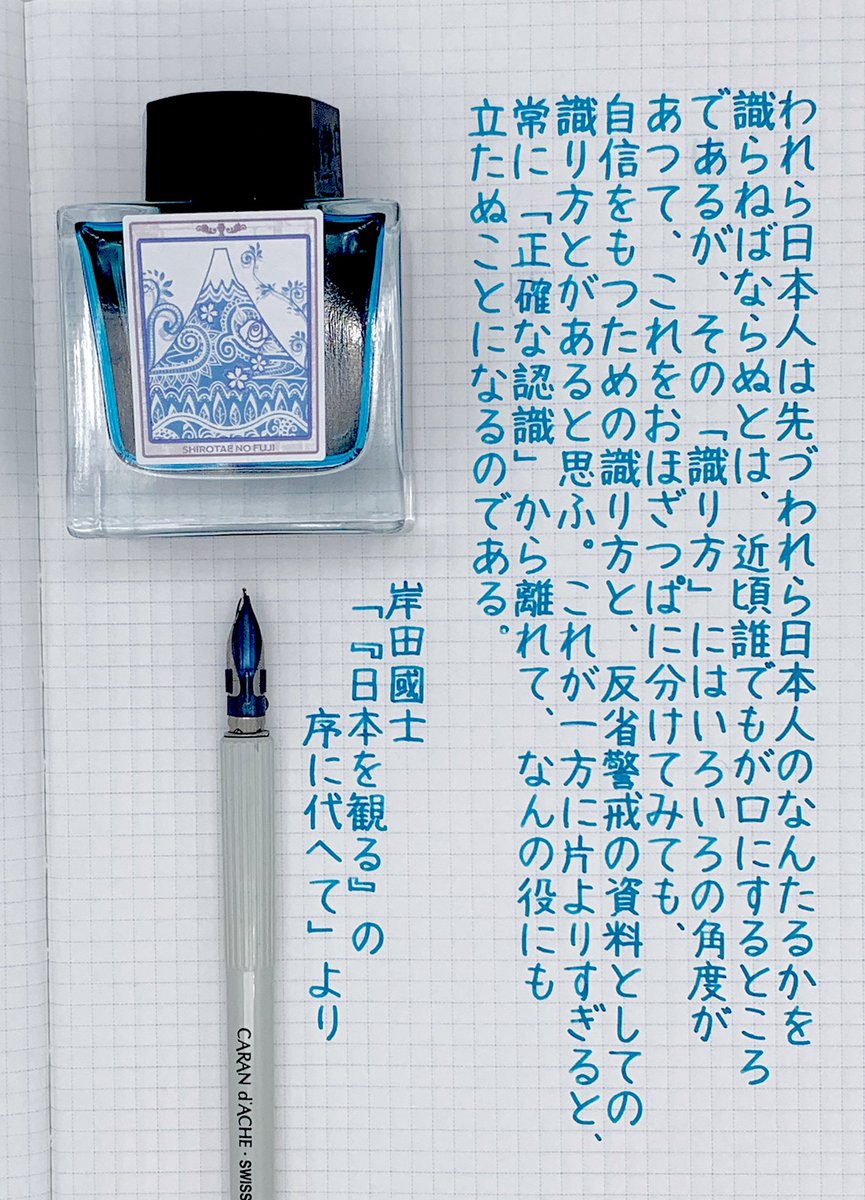 われら日本人は先づわれら日本人のなんたるかを
識らねばならぬとは、近頃誰でもが口にするところ
であるが、その「識り方」にはいろいろの角度が
あつて、これをおほざつぱに分けてみても、
自信をもつための識り方と、反省警戒の資料としての
識り方とがあると思ふ。これが一方に片よりすぎると、
常に「正確な認識」から離れて、なんの役にも
立たぬことになるのである。
岸田國士
「『日本を観る』の
序に代へて」より
SHIROTAE NO FUJI
CARAN d'ACHE · SWISS